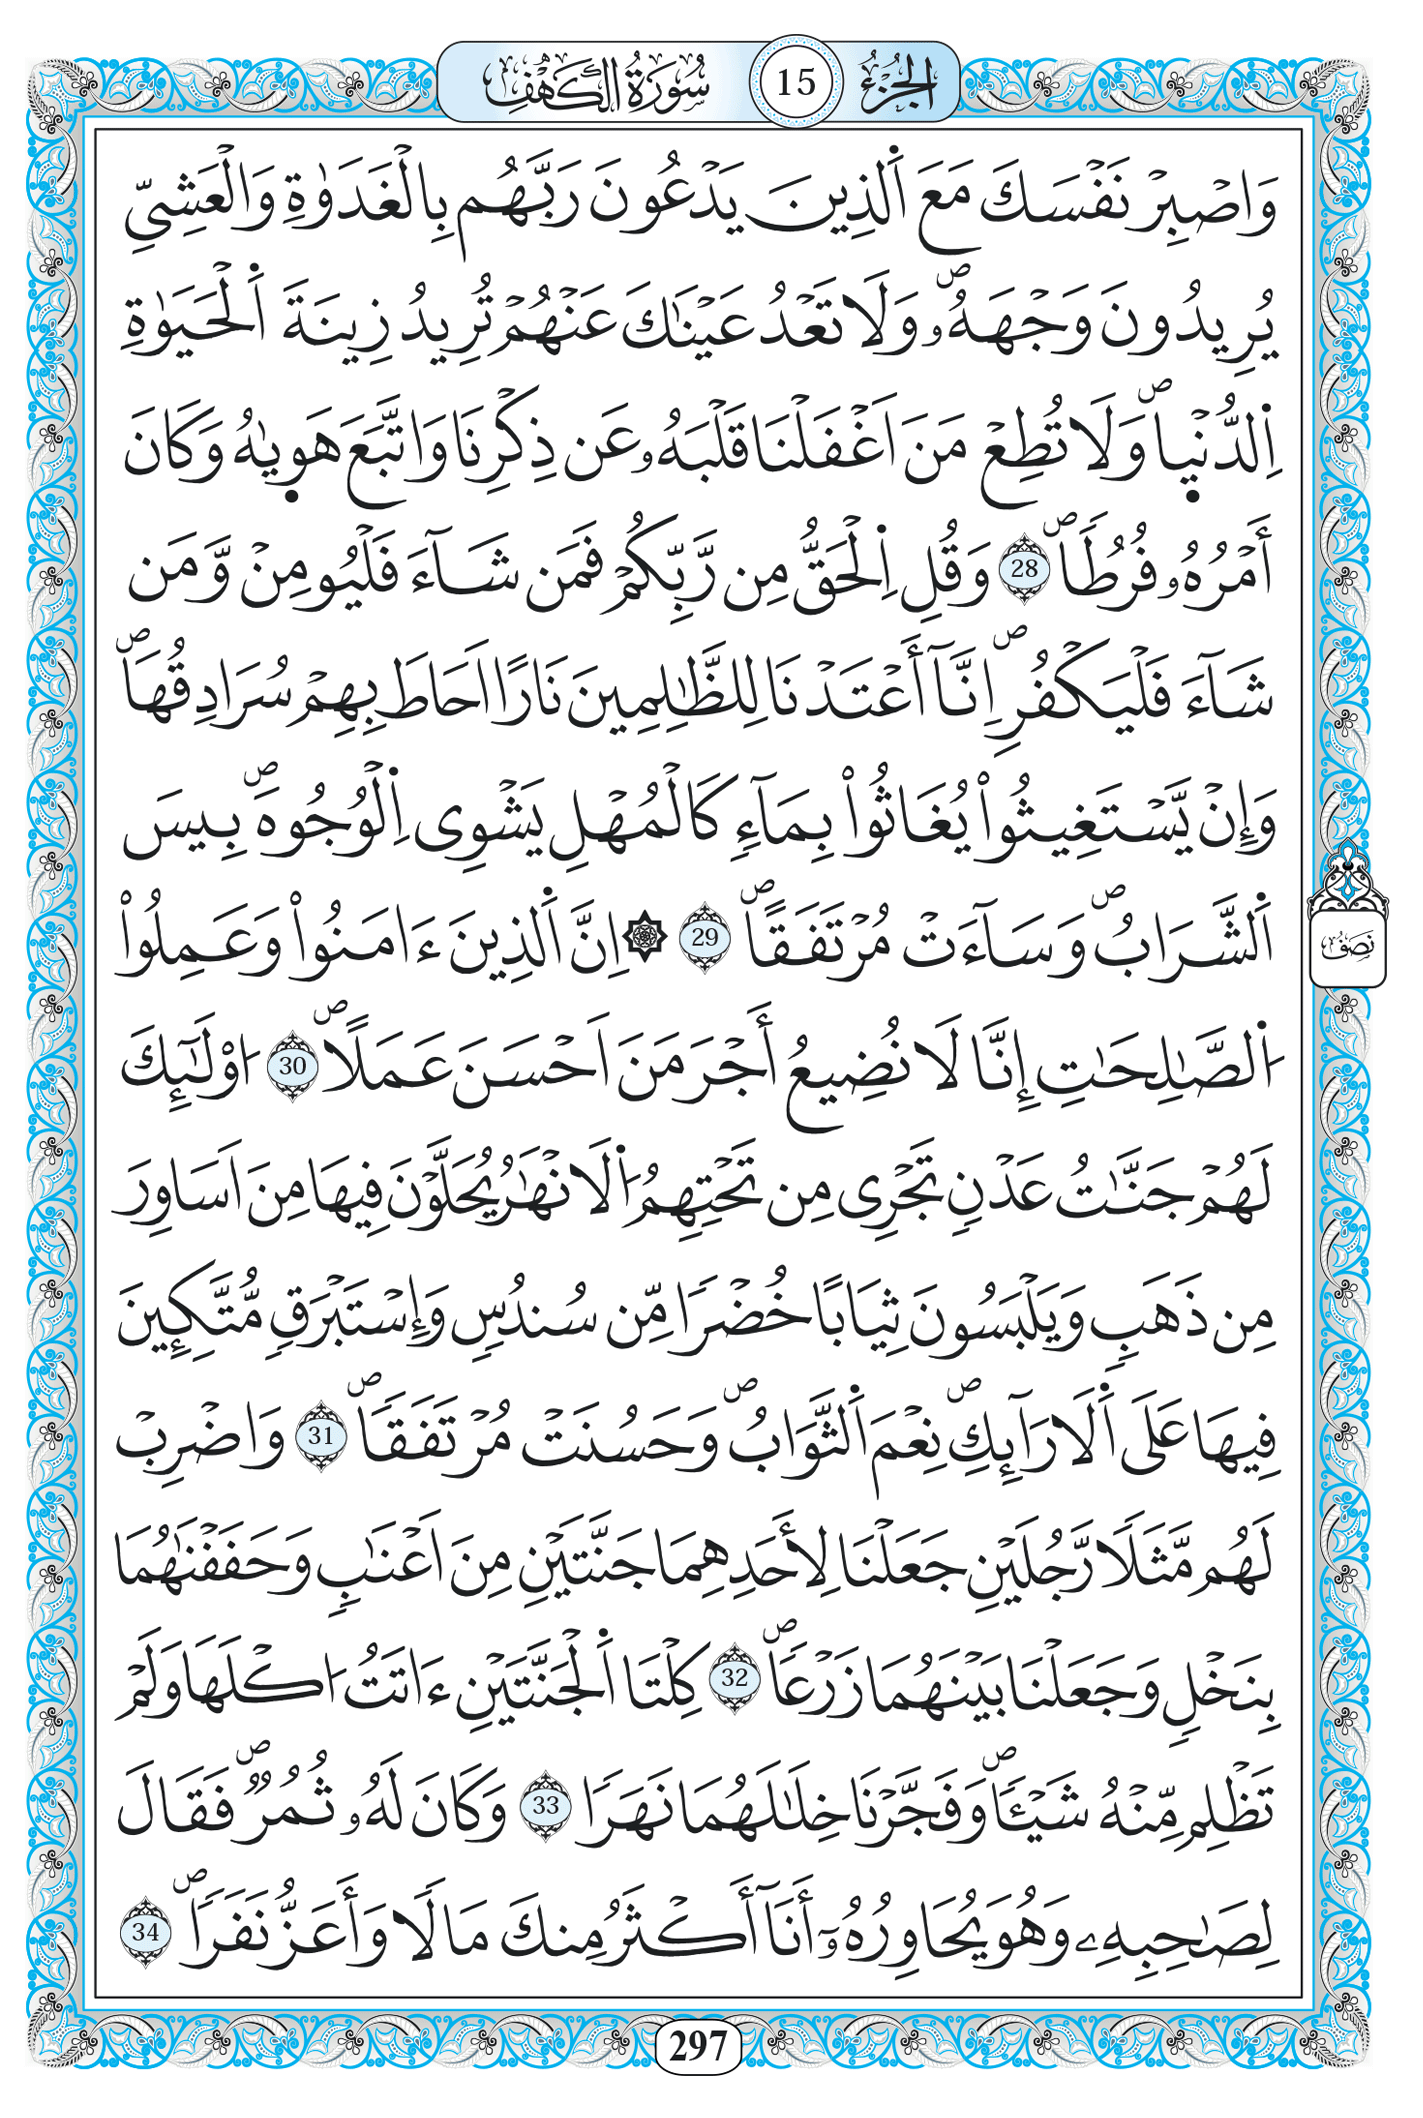 الجزء 15 سورة الكهف
وَاصْبِرْ نَفْسَكَ مَعَ اَ۬لذِينَ يَدْعُونَ رَبَّهُم بِالْغَدَوٰةِ وَالْعَشِيِّ
يُرِيدُونَ وَجْهَهُۥۖ وَلَا تَعْدُ عَيْنَٰكَ عَنْهُمْ تُرِيدُ زِينَةَ اَ۬لْحَيَوٰةِ
اِ۬لدُّنْي۪اۖ وَلَا تُطِعْ مَنَ اَغْفَلْنَا قَلْبَهُۥ عَن ذِكْرِنَا وَاتَّبَعَ هَو۪يٰهُ وَكَانَ
أَمْرُهُۥ فُرُطاٗۖ 28 وَقُلِ اِ۬لْحَقُّ مِن رَّبِّكُمْ فَمَن شَآءَ فَلْيُومِنْ وَّمَن
شَآءَ فَلْيَكْفُرِۖ اِنَّآ أَعْتَدْنَا لِلظَّٰلِمِينَ نَاراً اَحَاطَ بِهِمْ سُرَادِقُهَاۖ
وَإِنْ يَّسْتَغِيثُواْ يُغَاثُواْ بِمَآءٖ كَالْمُهْلِ يَشْوِى اِ۬لْوُجُوهَۖ بِيسَ
اَ۬لشَّرَابُۖ وَسَآءَتْ مُرْتَفَقاًۖ 29 ۞ اِنَّ اَ۬لذِينَ ءَامَنُواْ وَعَمِلُواْ
اُ۬لصَّٰلِحَٰتِ إِنَّا لَا نُضِيعُ أَجْرَ مَنَ اَحْسَنَ عَمَلًاۖ 30 اوْلَٰٓئِكَ
لَهُمْ جَنَّٰتُ عَدْنٖ تَجْرِى مِن تَحْتِهِمُ اُ۬لَانْهَٰرُ يُحَلَّوْنَ فِيهَا مِنَ اَسَاوِرَ
مِن ذَهَبٖ وَيَلْبَسُونَ ثِيَاباً خُضْراٗ مِّن سُندُسٖ وَإِسْتَبْرَقٖ مُّتَّكِـِٕينَ
فِيهَا عَلَى اَ۬لَارَآئِكِۖ نِعْمَ اَ۬لثَّوَابُۖ وَحَسُنَتْ مُرْتَفَقاٗۖ 31 وَاضْرِبْ
لَهُم مَّثَلًا رَّجُلَيْنِ جَعَلْنَا لِأَحَدِهِمَا جَنَّتَيْنِ مِنَ اَعْنَٰبٖ وَحَفَفْنَٰهُمَا
بِنَخْلٖ وَجَعَلْنَا بَيْنَهُمَا زَرْعاٗۖ 32 كِلْتَا اَ۬لْجَنَّتَيْنِ ءَاتَتُ اكْلَهَا وَلَمْ
تَظْلِم مِّنْهُ شَيْـٔاٗۖ وَفَجَّرْنَا خِلَٰلَهُمَا نَهَراٗ 33 وَكَانَ لَهُۥ ثُمُرٞۖ فَقَالَ
لِصَٰحِبِهِۦ وَهُوَ يُحَاوِرُهُۥٓ أَنَآ أَكْثَرُ مِنكَ مَالًا وَأَعَزُّ نَفَراٗۖ 34
نصف
297